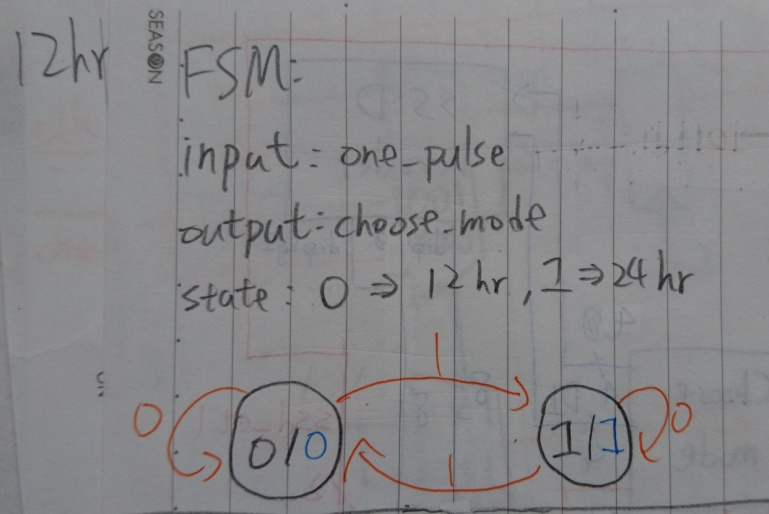 12hr
SEASON
FSM:
input: one_pulse
output: choose_mode
state: 0 ⇒ 12hr, 1 ⇒ 24 hr
1
0 0/0 1/1 0
1